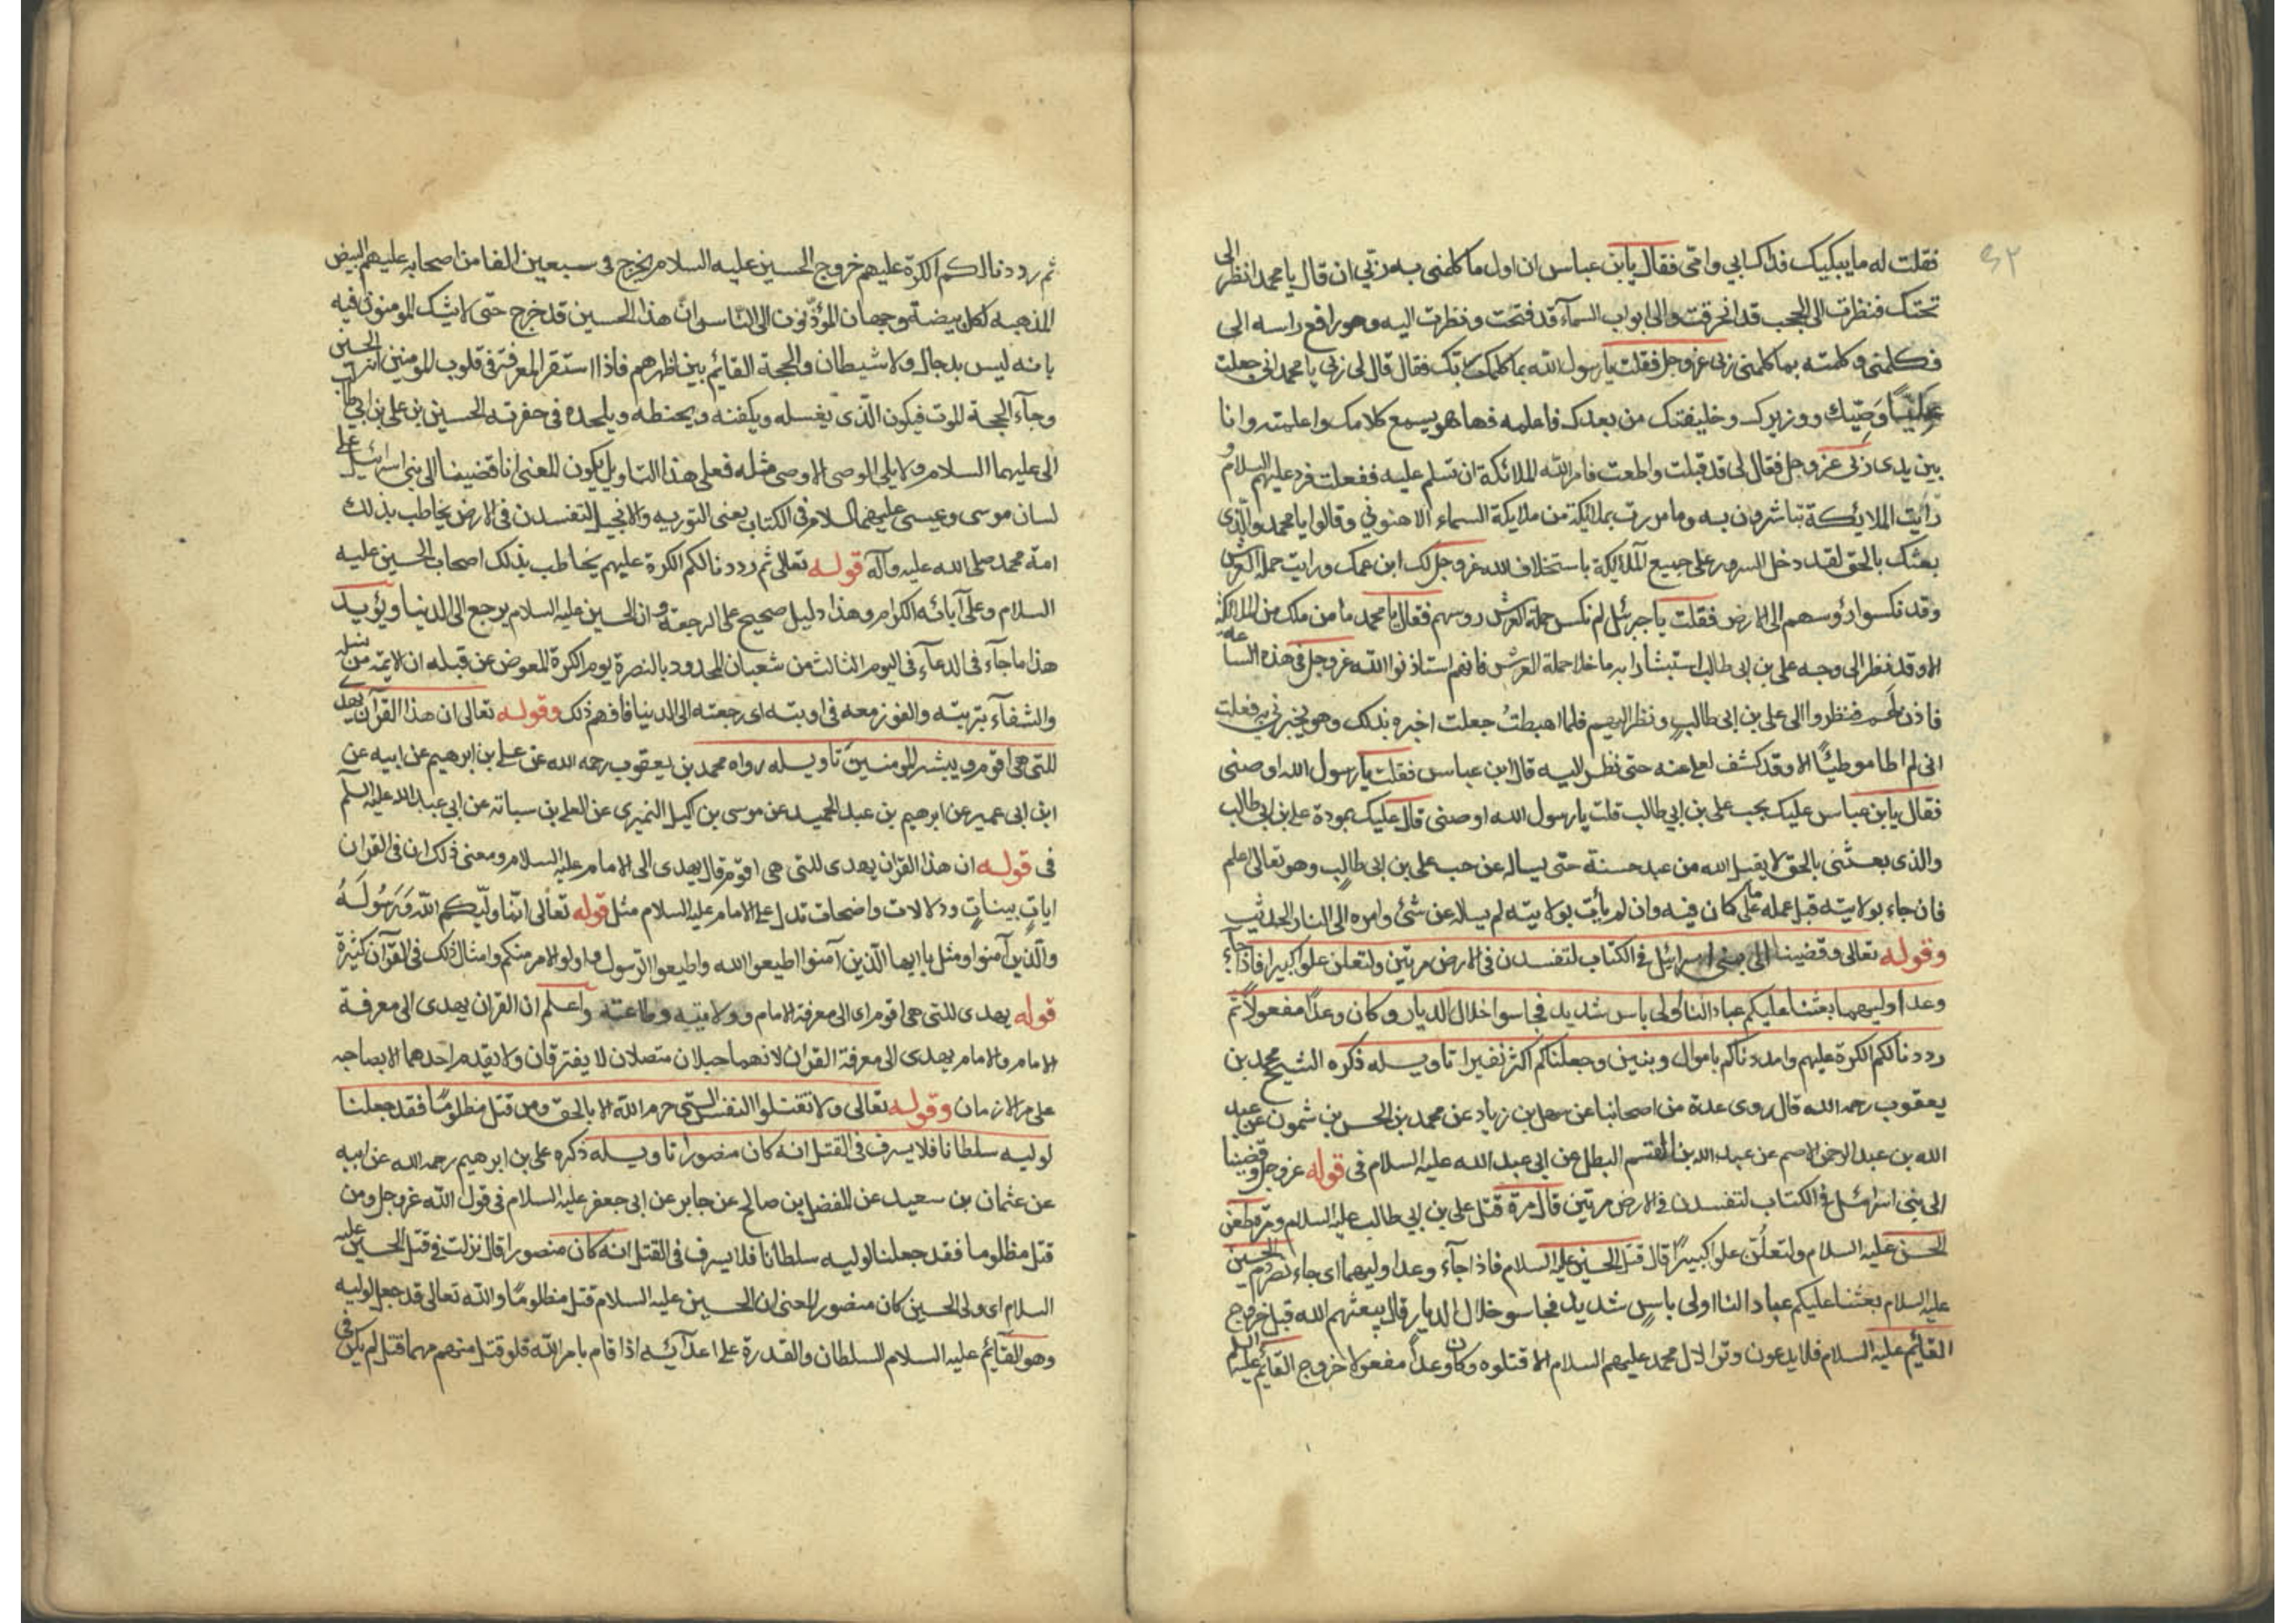 فقلت له ما يبكيك فداك ابي وامي فقال يابن عباس ان اول ما كلمني به ربي ان قال يا محمد انظر الى
تحتك فنظرت الى الحجب قد انخرقت والى ابواب السمآء قد فتحت ونظرت اليه وهو رافع راسه الى
فكلمني وكلمته بما كلمني ربي عز وجل فقلت يا رسول الله بما كلمك ربك فقال قال لي ربي يا محمد اني جعلت
عليًّا وَصِيّك ووزيرك وخليفتك من بعدك فاعلمه فها هو يسمع كلامك واعلمته وانا
بين يدى ربى عز وجل فقال لى قد قبلت واطعت فامر الله الملائكة ان تسلم عليه ففعلت فرد عليهم السلام و
رأيت الملائكة تتباشرون به وما مررت بملائكة من ملايكة السماء الا هنوني وقالوا يا محمد والّذى
بعثك بالحق لقد دخل السرور على جميع الملايكة باستخلاف الله عز وجل لك ابن عمك ورايت حملة العرش
وقد نكسوا رؤسهم الى الارض فقلت يا جبرئيل لم نكس حملة العرش روسهم فقال يا محمد ما من ملك من الملائكة
الا وقد نظر الى وجه على بن ابى طالب استبشارا به ما خلا حملة العرش فانهم استاذنوا الله عز وجل فى هذه الساعة
فاذن لهم فنظروا الى على بن ابى طالب ونظر اليهم فلما اهبطتُ جعلت اخبره بذلك وهو يخبرني به فعلمت
انى لم اطا موطئًا الا وقد كشف لعلى عنه حتى نظر اليه قال ابن عباس فقلت يا رسول الله اوصنى
فقال يابن عباس عليك بحب على بن ابي طالب قلت يا رسول الله اوصنى قال عليك بمودة على بن ابى طالب
والذى بعثنى بالحق لا يقبل الله من عبد حسنة حتى يساله عن حب على بن ابى طالب وهو تعالى اعلم
فان جاء بولايته قبل عمله على ما كان فيه وان لم يأت بولايته لم يساله عن شئ وامره الى النار الحديث
وقوله تعالى وقضينا الى بنى اسرائيل فى الكتاب لتفسدن فى الارض مرتين ولتعلن علوا كبيرا فاذا جآء
وعد اوليهما بعثنا عليكم عبادا لنا اولى باس شديد فجاسوا خلال الديار وكان وعدًا مفعولًا ثم
رددنا لكم الكرة عليهم وامددناكم باموال وبنين وجعلناكم اكثر نفيرا تاويله ذكره الشيخ محمد بن
يعقوب رحمه الله قال روى عدة من اصحابنا عن سهل بن زياد عن محمد بن الحسن بن شمون عن عبد
الله بن عبد الرحمن الاصم عن عبد الله بن القسم البطل عن ابى عبد الله عليه السلام فى قوله عز وجل وقضينا
الى بنى اسرائيل فى الكتاب لتفسدن فى الارض مرتين قال مرة قتل على بن ابي طالب عليه السلام ومرة طعن
الحسن عليه السلام ولتعلُنّ علوا كبيرًا قال قتل الحسين عليه السلام فاذا جآء وعد اوليهما اى جاء نصر دم الحسين
عليه السلام بعثنا عليكم عبادا لنا اولى باسٍ شديد فجاسو خلال الديار قال يبعثهم الله قبل خروج
القائم عليه السلام فلا يدعون وترا لال محمد عليهم السلام الا قتلوه وكان وعدًا مفعولا خروج القائم عليه السلم
ثم رددنا لكم الكرة عليهم خروج الحسين عليه السلام يخرج فى سبعين الفا من اصحابه عليهم البيض
المذهبه لكل بيضة وجهان المؤذنون الى الناس وانّ هذا الحسين قد خرج حتى لا يشك المومنون فيه
بانه ليس بدجال ولا شيطان والحجة القائم بين اظهرهم فاذا استقر المعرفة فى قلوب المومنين انه الحسين
وجآء الحجة الموت فيكون الّذى يغسله ويكفنه ويحنطه ويلحده فى حفرته الحسين بن على بن ابي طالب
الى عليهما السلام ولا يلى الوصى الا وصى مثله فعلى هذا التاويل يكون المعنى انا قضينا الى بنى اسرائيل على
لسان موسى وعيسى عليهما السلام فى الكتاب يعنى التورية والانجيل لتفسدن فى الارض يخاطب بذلك
امة محمد صلى الله عليه وآله قوله تعالى ثم رددنا لكم الكرة عليهم يخاطب بذلك اصحاب الحسين عليه
السلام وعلى آبائه الكرام وهذا دليل صحيح على الرجعة وان الحسين عليه السلام يرجع الى الدنيا ويؤيد
هذا ما جآء فى الدعآء فى اليوم الثالث من شعبان الممدود بالنصرة يوم الكرة المعوض عن قتله ان الائمّة من نسله
والشفآء بتربته والفوز معه فى اوبته اى رجعته الى الدنيا فافهم ذلك وقوله تعالى ان هذا القرآن يهدى
للتى هى اقوم ويبشر المومنين تاويله رواه محمد بن يعقوب رحمه الله عن على بن ابرهيم عن ابيه عن
ابن ابى عمير عن ابرهيم بن عبد الحميد عن موسى بن اكيل النميرى عن العلا بن سيابة عن ابى عبد الله عليه السلم
فى قوله ان هذا القرآن يهدى للتى هى اقوم قال يهدى الى الامام عليه السلام ومعنى ذلك ان فى القران
اياتٍ بيناتٍ ودلالات واضحات تدل على الامام عليه السلام مثل قوله تعالى انّما وليّكم اللّه وَرَسُولَهُ
والّذين آمنوا ومثل يا ايها الّذين آمنوا اطيعوا الله واطيعوا الرّسول واولو الامر منكم وامثال ذلك فى القرآن كثيرة
قوله يهدى للتى هى اقوم اى الى معرفة الامام وولايته وطاعته واعلم ان القران يهدى الى معرفة
الامام والامام يهدى الى معرفة القران لانهما حبلان متصلان لا يفترقان ولا يقدم احدهما الا بصاحبه
على مر الازمان وقوله تعالى ولا تقتلوا النفس التى حرم الله الا بالحق ومن قتل مظلومًا فقد جعلنا
لوليه سلطانا فلا يسرف فى القتل انه كان منصورا تاويله ذكره على بن ابرهيم رحمه الله عن ابيه
عن عثمان بن سعيد عن المفضل بن صالح عن جابر عن ابى جعفر عليه السلام فى قول الله عز وجل ومن
قتل مظلوما فقد جعلنا لوليه سلطانا فلا يسرف فى القتل انه كان منصورا قال نزلت فى قتل الحسين عليه
السلام اى ولى الحسين كان منصورا المعنى ان الحسين عليه السلام قتل مظلومًا والله تعالى قد جعل لوليه
وهو القآئم عليه السلام السلطان والقدرة على اعدآئه اذا قام بامر الله فلو قتل منهم مهما قتل لم يكن فى